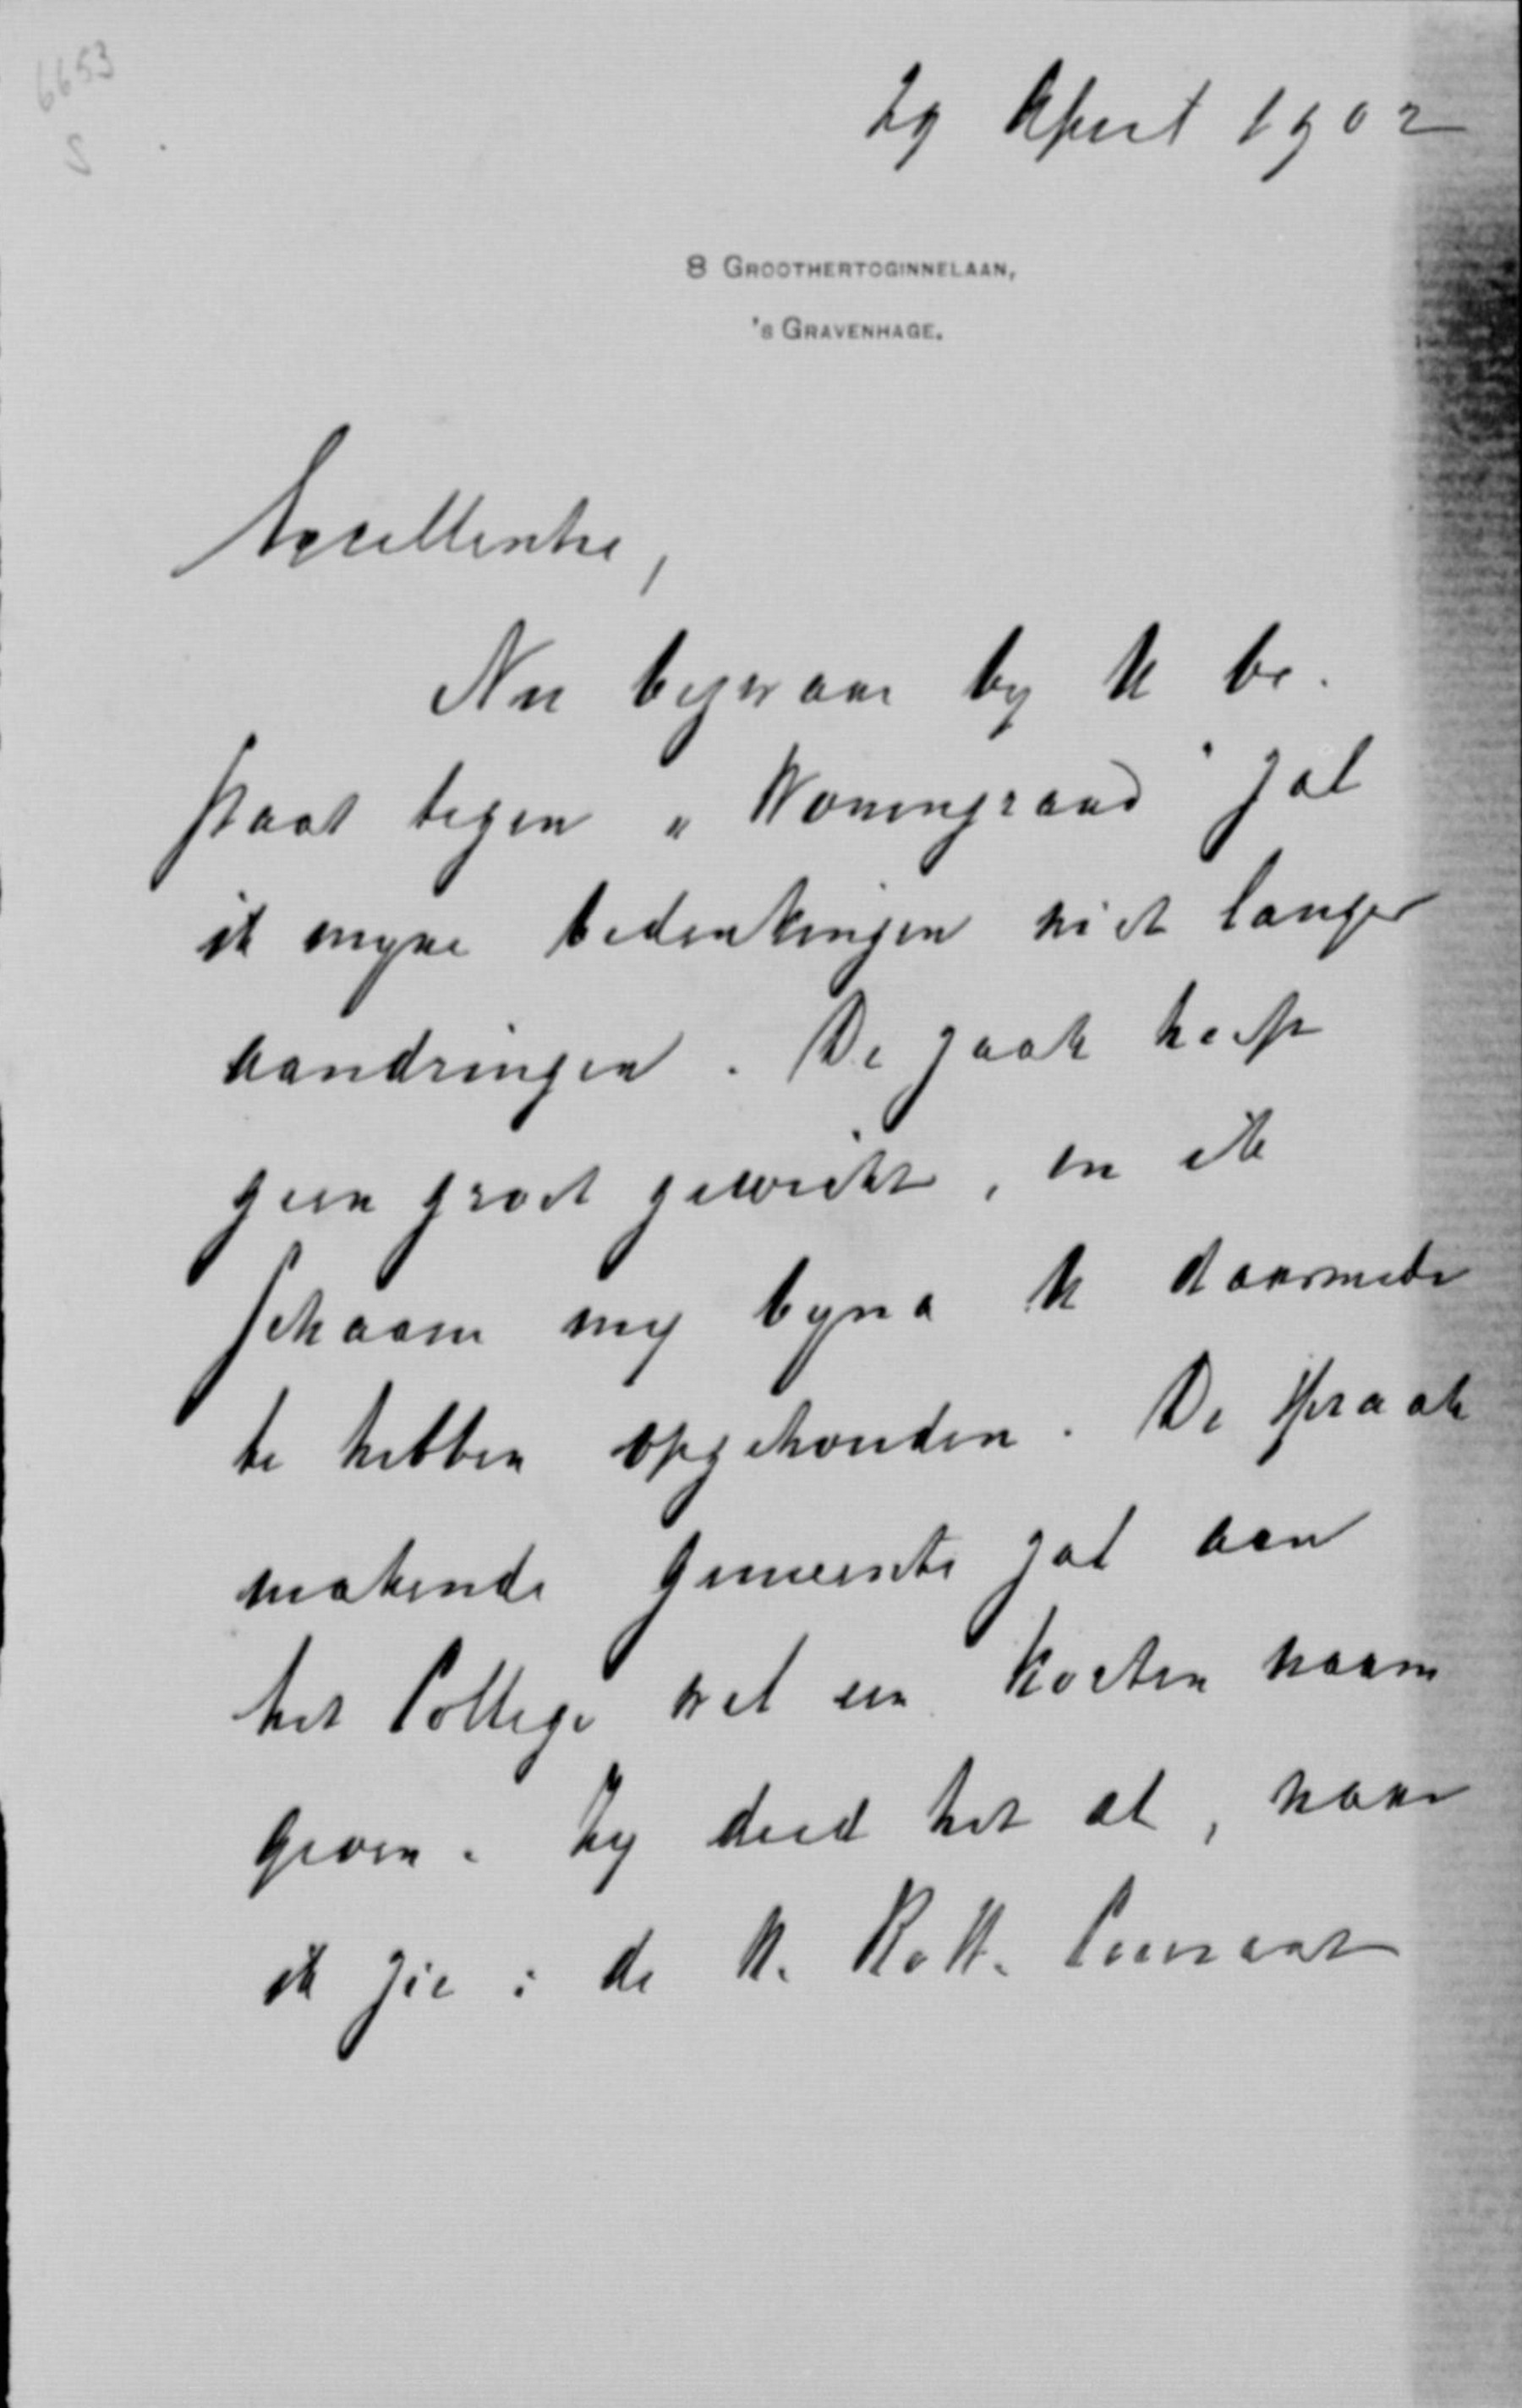 6653
S
29 April 1902
8 GROOTHERTOGINNELAAN,
's GRAVENHAGE.
Excellentie,
Nu bezwaar by U be-
staat tegen „Woningraad" zal
ik myne bedenkingen niet langer
aandringen. De zaak heeft
geen groot gewicht, en ik
schaam my byna U daarmede
te hebben opgehouden. De spraak
makende gemeente zal aan
het College wel een korten naam
geven. Zy deed het al, naar
ik zie i: de N. Rott. Courant